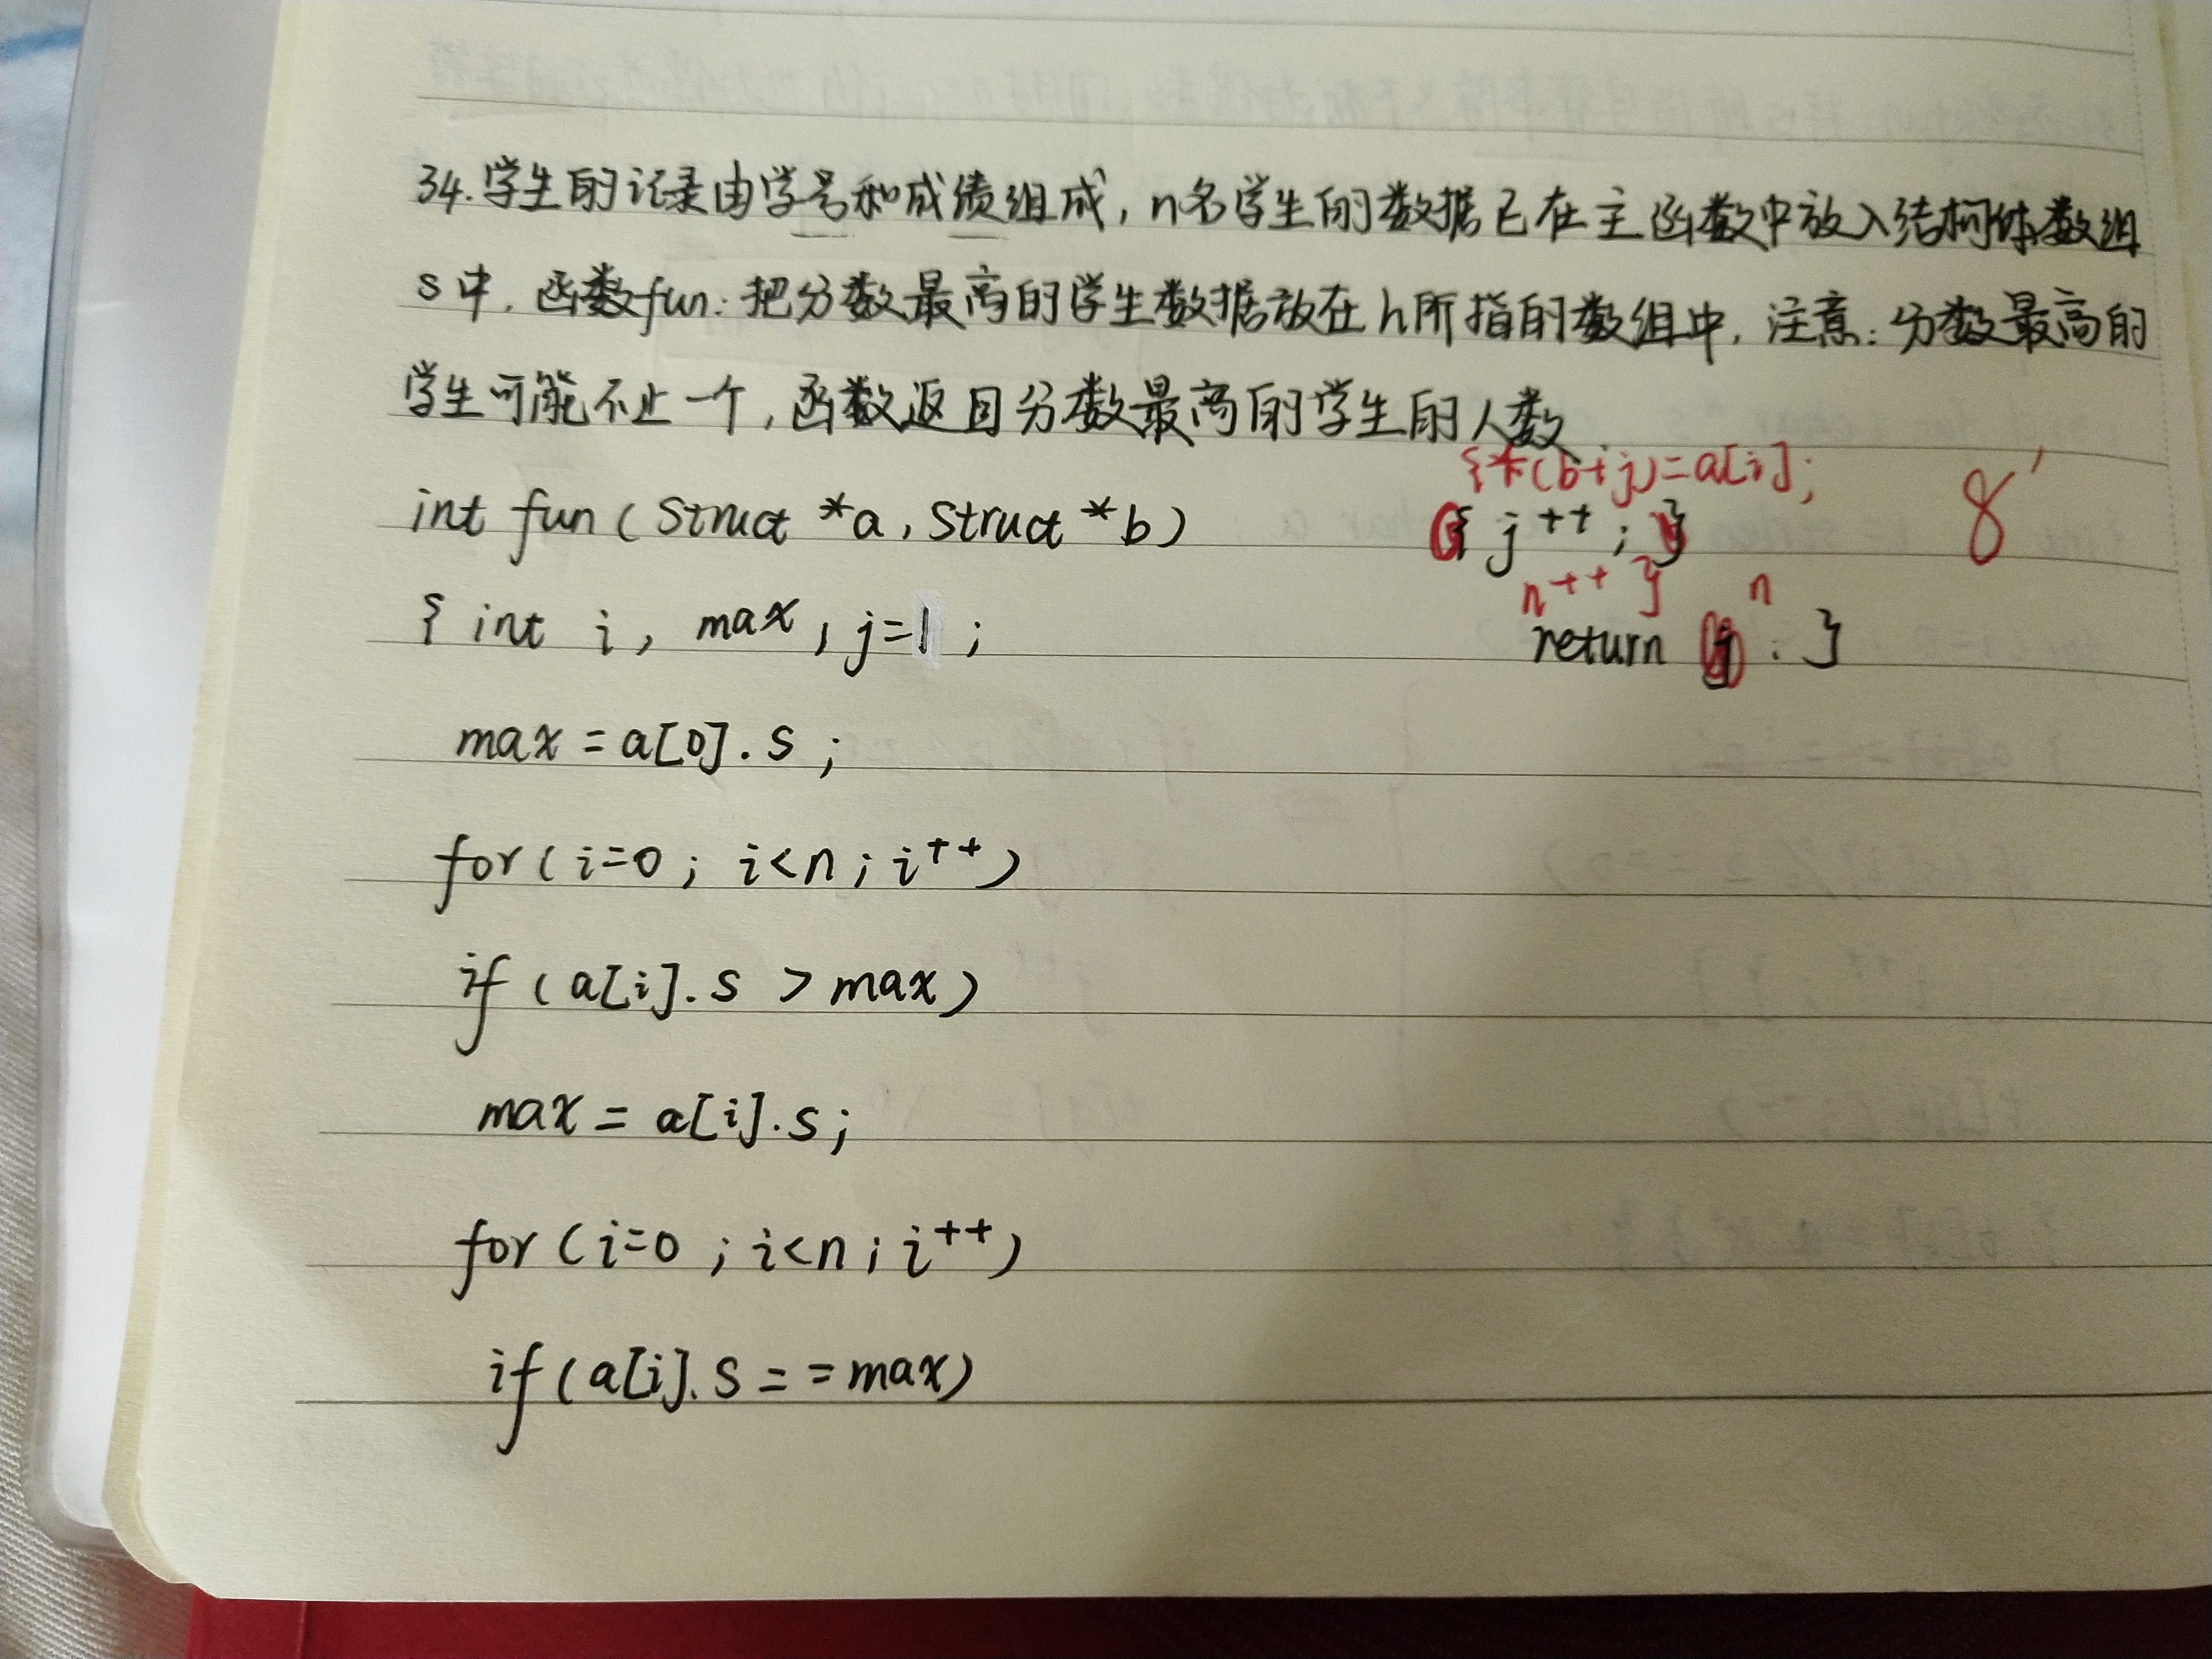 34.学生的记录由学号和成绩组成,n名学生的数据已在主函数中放入结构体数组
s中.函数fun:把分数最高的学生数据放在h所指的数组中.注意:分数最高的
学生可能不止一个,函数返回分数最高的学生的人数.
int fun(Struct *a, Struct *b)
{ int i, max, j=1;
max = a[0].s;
for(i=0; i<n; i++)
if(a[i].s > max)
max = a[i].s;
for(i=0; i<n; i++)
if(a[i].s == max)
{*(b+j)=a[i];
{ j++; }
n++ }
n
return j; }
8'